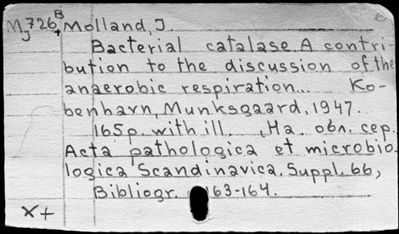 MJ726 B4 Molland, J.
Bacterial catalase. A contri-
bution to the discussion of the
anaerobic respiration... Ko-
benhavn, Munksgaard, 1947.
165p. with ill. , На обл. сер.
Acta pathologica et microbio-
logica Scandinavica. Suppl. 66,
Bibliogr. 163-164.
X+